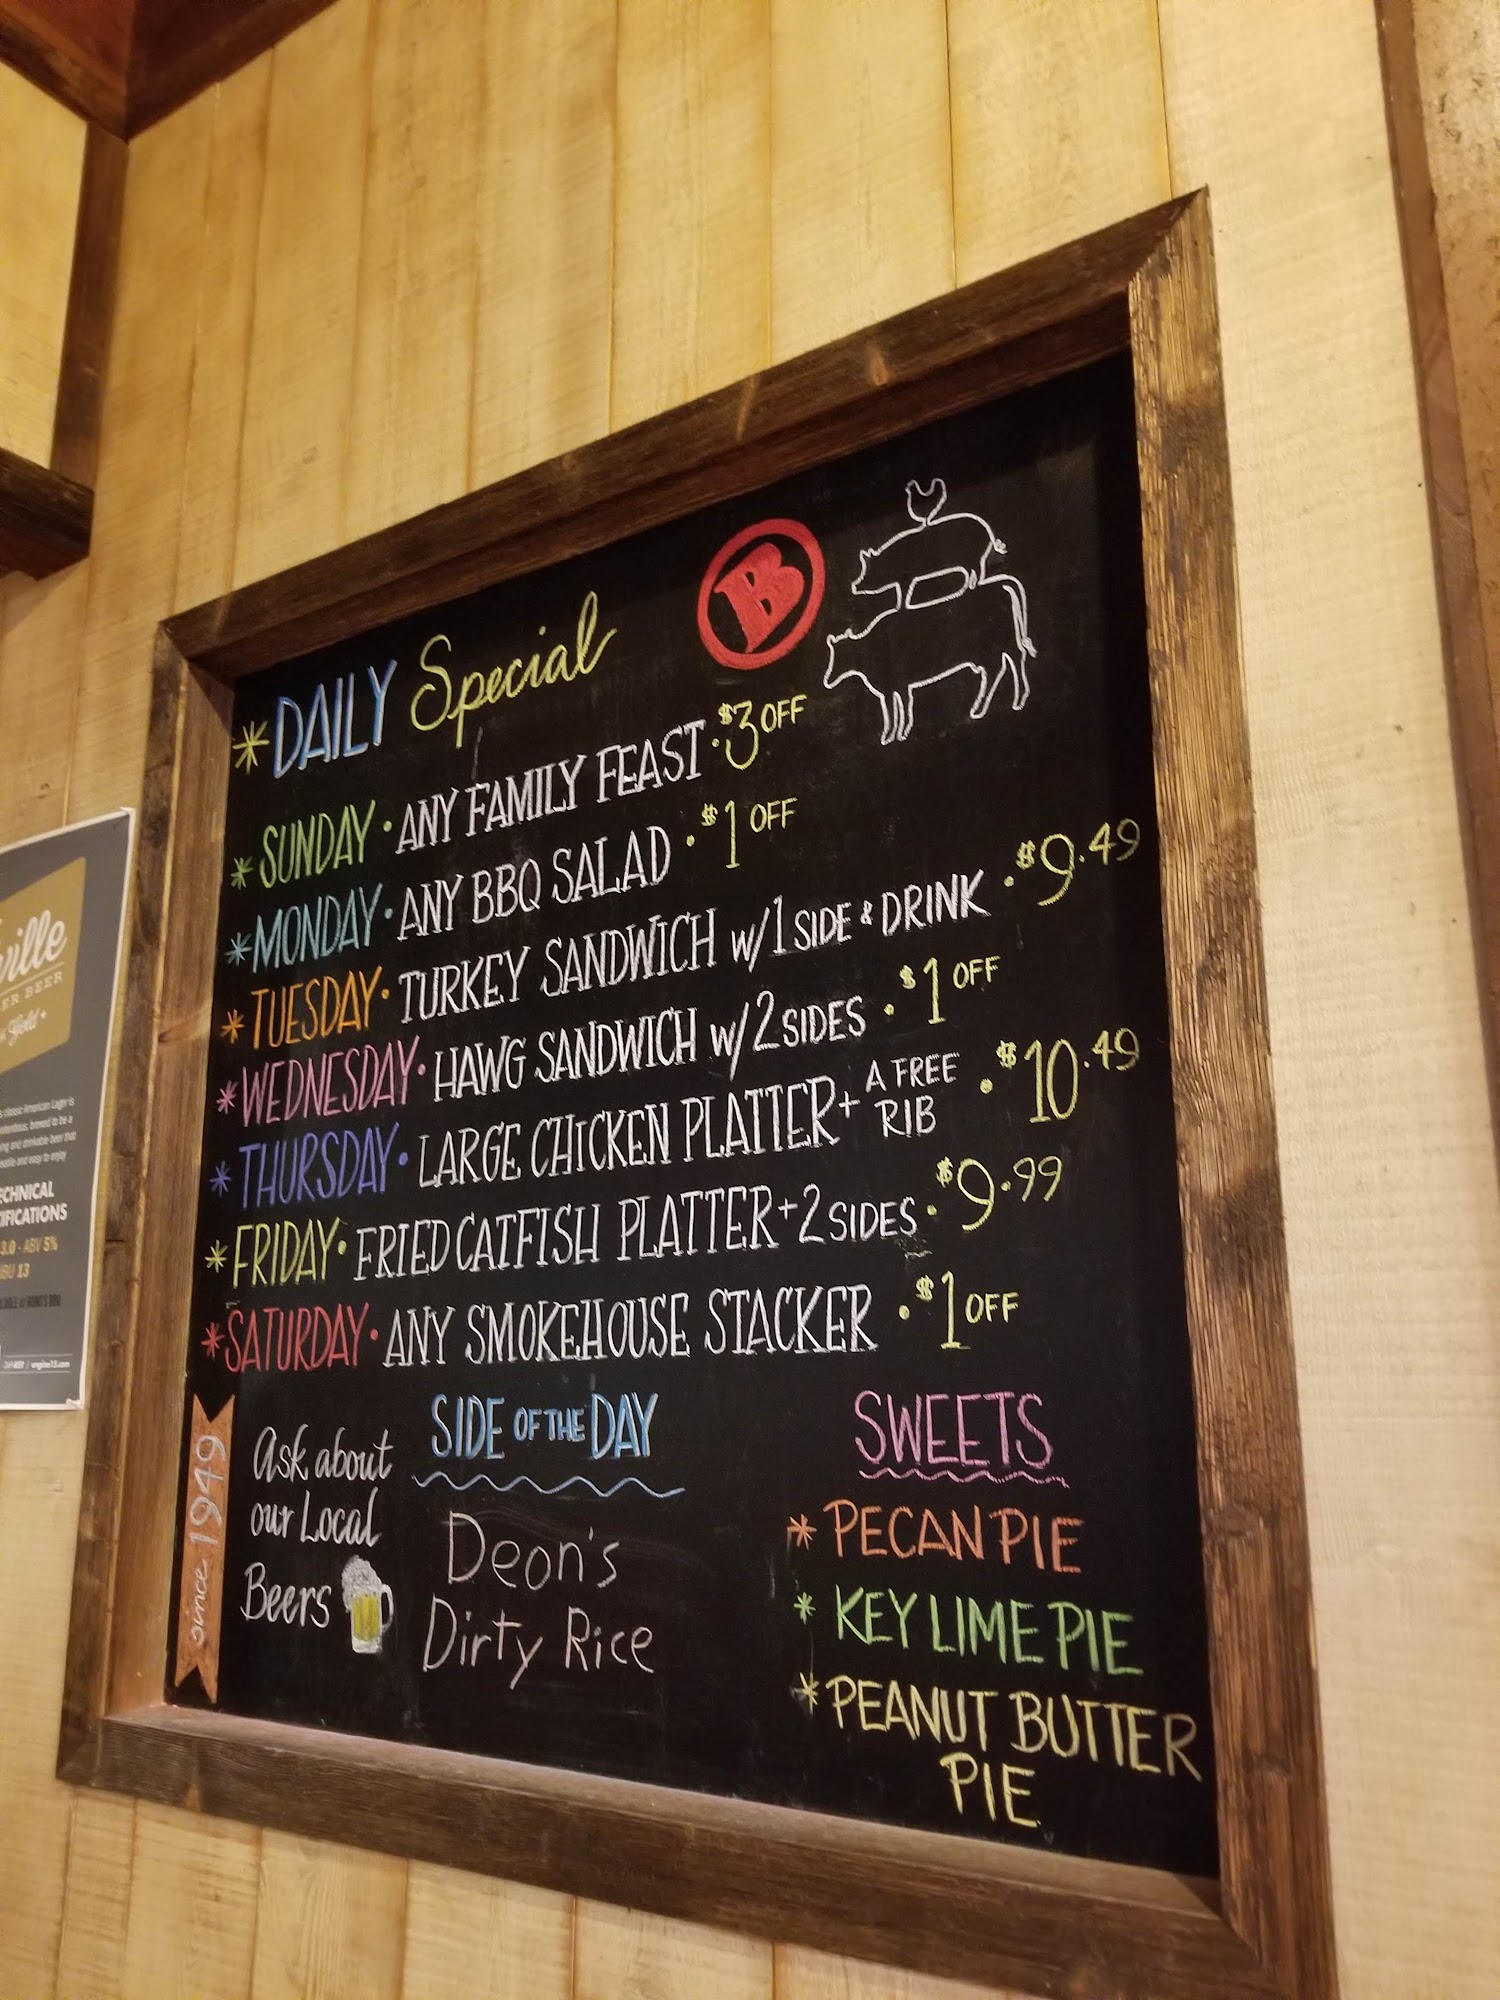 B
* DAILY Special
* SUNDAY • ANY FAMILY FEAST • $3 OFF
* MONDAY • ANY BBQ SALAD • $1 OFF
* TUESDAY • TURKEY SANDWICH w/1 SIDE & DRINK • $9.49
* WEDNESDAY • HAWG SANDWICH w/2 SIDES • $1 OFF
* THURSDAY • LARGE CHICKEN PLATTER + A FREE RIB • $10.49
* FRIDAY • FRIED CATFISH PLATTER + 2 SIDES • $9.99
* SATURDAY • ANY SMOKEHOUSE STACKER • $1 OFF
since 1949
Ask about
our Local
Beers
SIDE OF THE DAY
Deon's
Dirty Rice
SWEETS
* PECAN PIE
* KEY LIME PIE
* PEANUT BUTTER
PIE
ville
ER BEER
Gold
classic American Lager is
brewed to be a
and drinkable beer that
and easy to enjoy
3.0 - ABV 5%
13
engine15.com